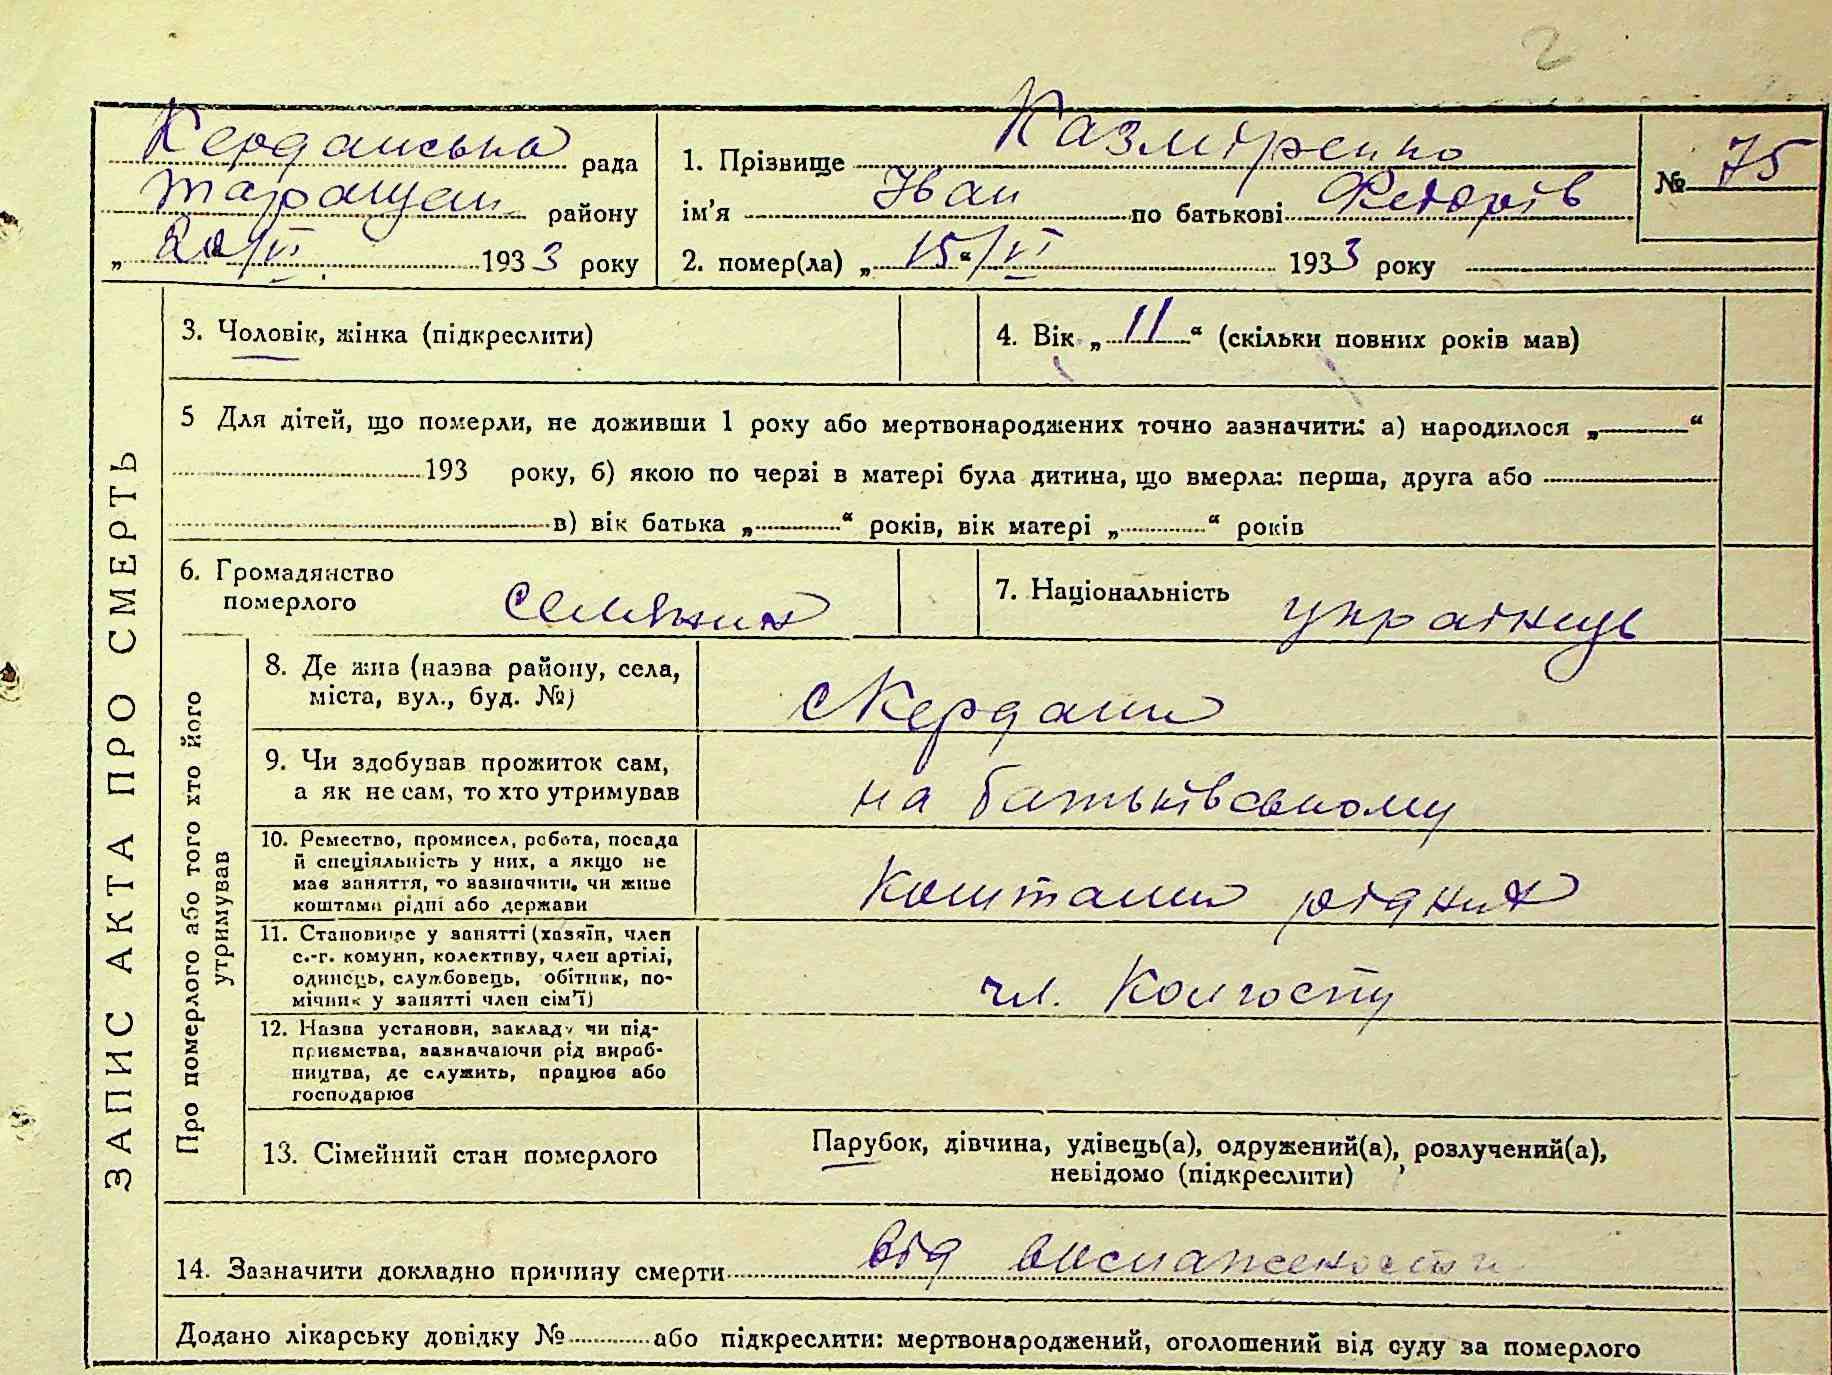 2
Керданська рада
Таращан. району
„20“/VI 1933 року
1. Прізвище Казміренко
ім'я Іван по батькові Федорів
2. помер(ла) „15“/VI 1933 року
№ 75
ЗАПИС АКТА ПРО СМЕРТЬ
3. Чоловік, жінка (підкреслити)
4. Вік „11“ (скільки повних років мав)
5 Для дітей, що померли, не доживши 1 року або мертвонароджених точно зазначити: а) народилося „ “
193 року, б) якою по черзі в матері була дитина, що вмерла: перша, друга або
в) вік батька „ “ років, вік матері „ “ років
6. Громадянство
померлого
селянин
7. Національність українець
Про померлого або того хто його
утримував
8. Де жив (назва району, села,
міста, вул., буд. №)
с Кердани
9. Чи здобував прожиток сам,
а як не сам, то хто утримував
на батьківському
10. Ремество, промисел, робота, посада
й спеціяльність у них, а якщо не
має заняття, то зазначити, чи живе
коштами рідні або держави
коштами рідних
11. Становище у занятті (хазяїн, член
с.-г. комуни, колективу, член артілі,
одинець, службовець, обітник, по-
мічник у занятті член сім'ї)
чл. колгоспу
12. Назва установи, закладу чи під-
приємства, зазначаючи рід вироб-
ництва, де служить, працює або
господарює
13. Сімейний стан померлого
Парубок, дівчина, удівець(а), одружений(а), розлучений(а),
невідомо (підкреслити)
14. Зазначити докладно причину смерти від виснажености
Додано лікарську довідку № або підкреслити: мертвонароджений, оголошений від суду за померлого